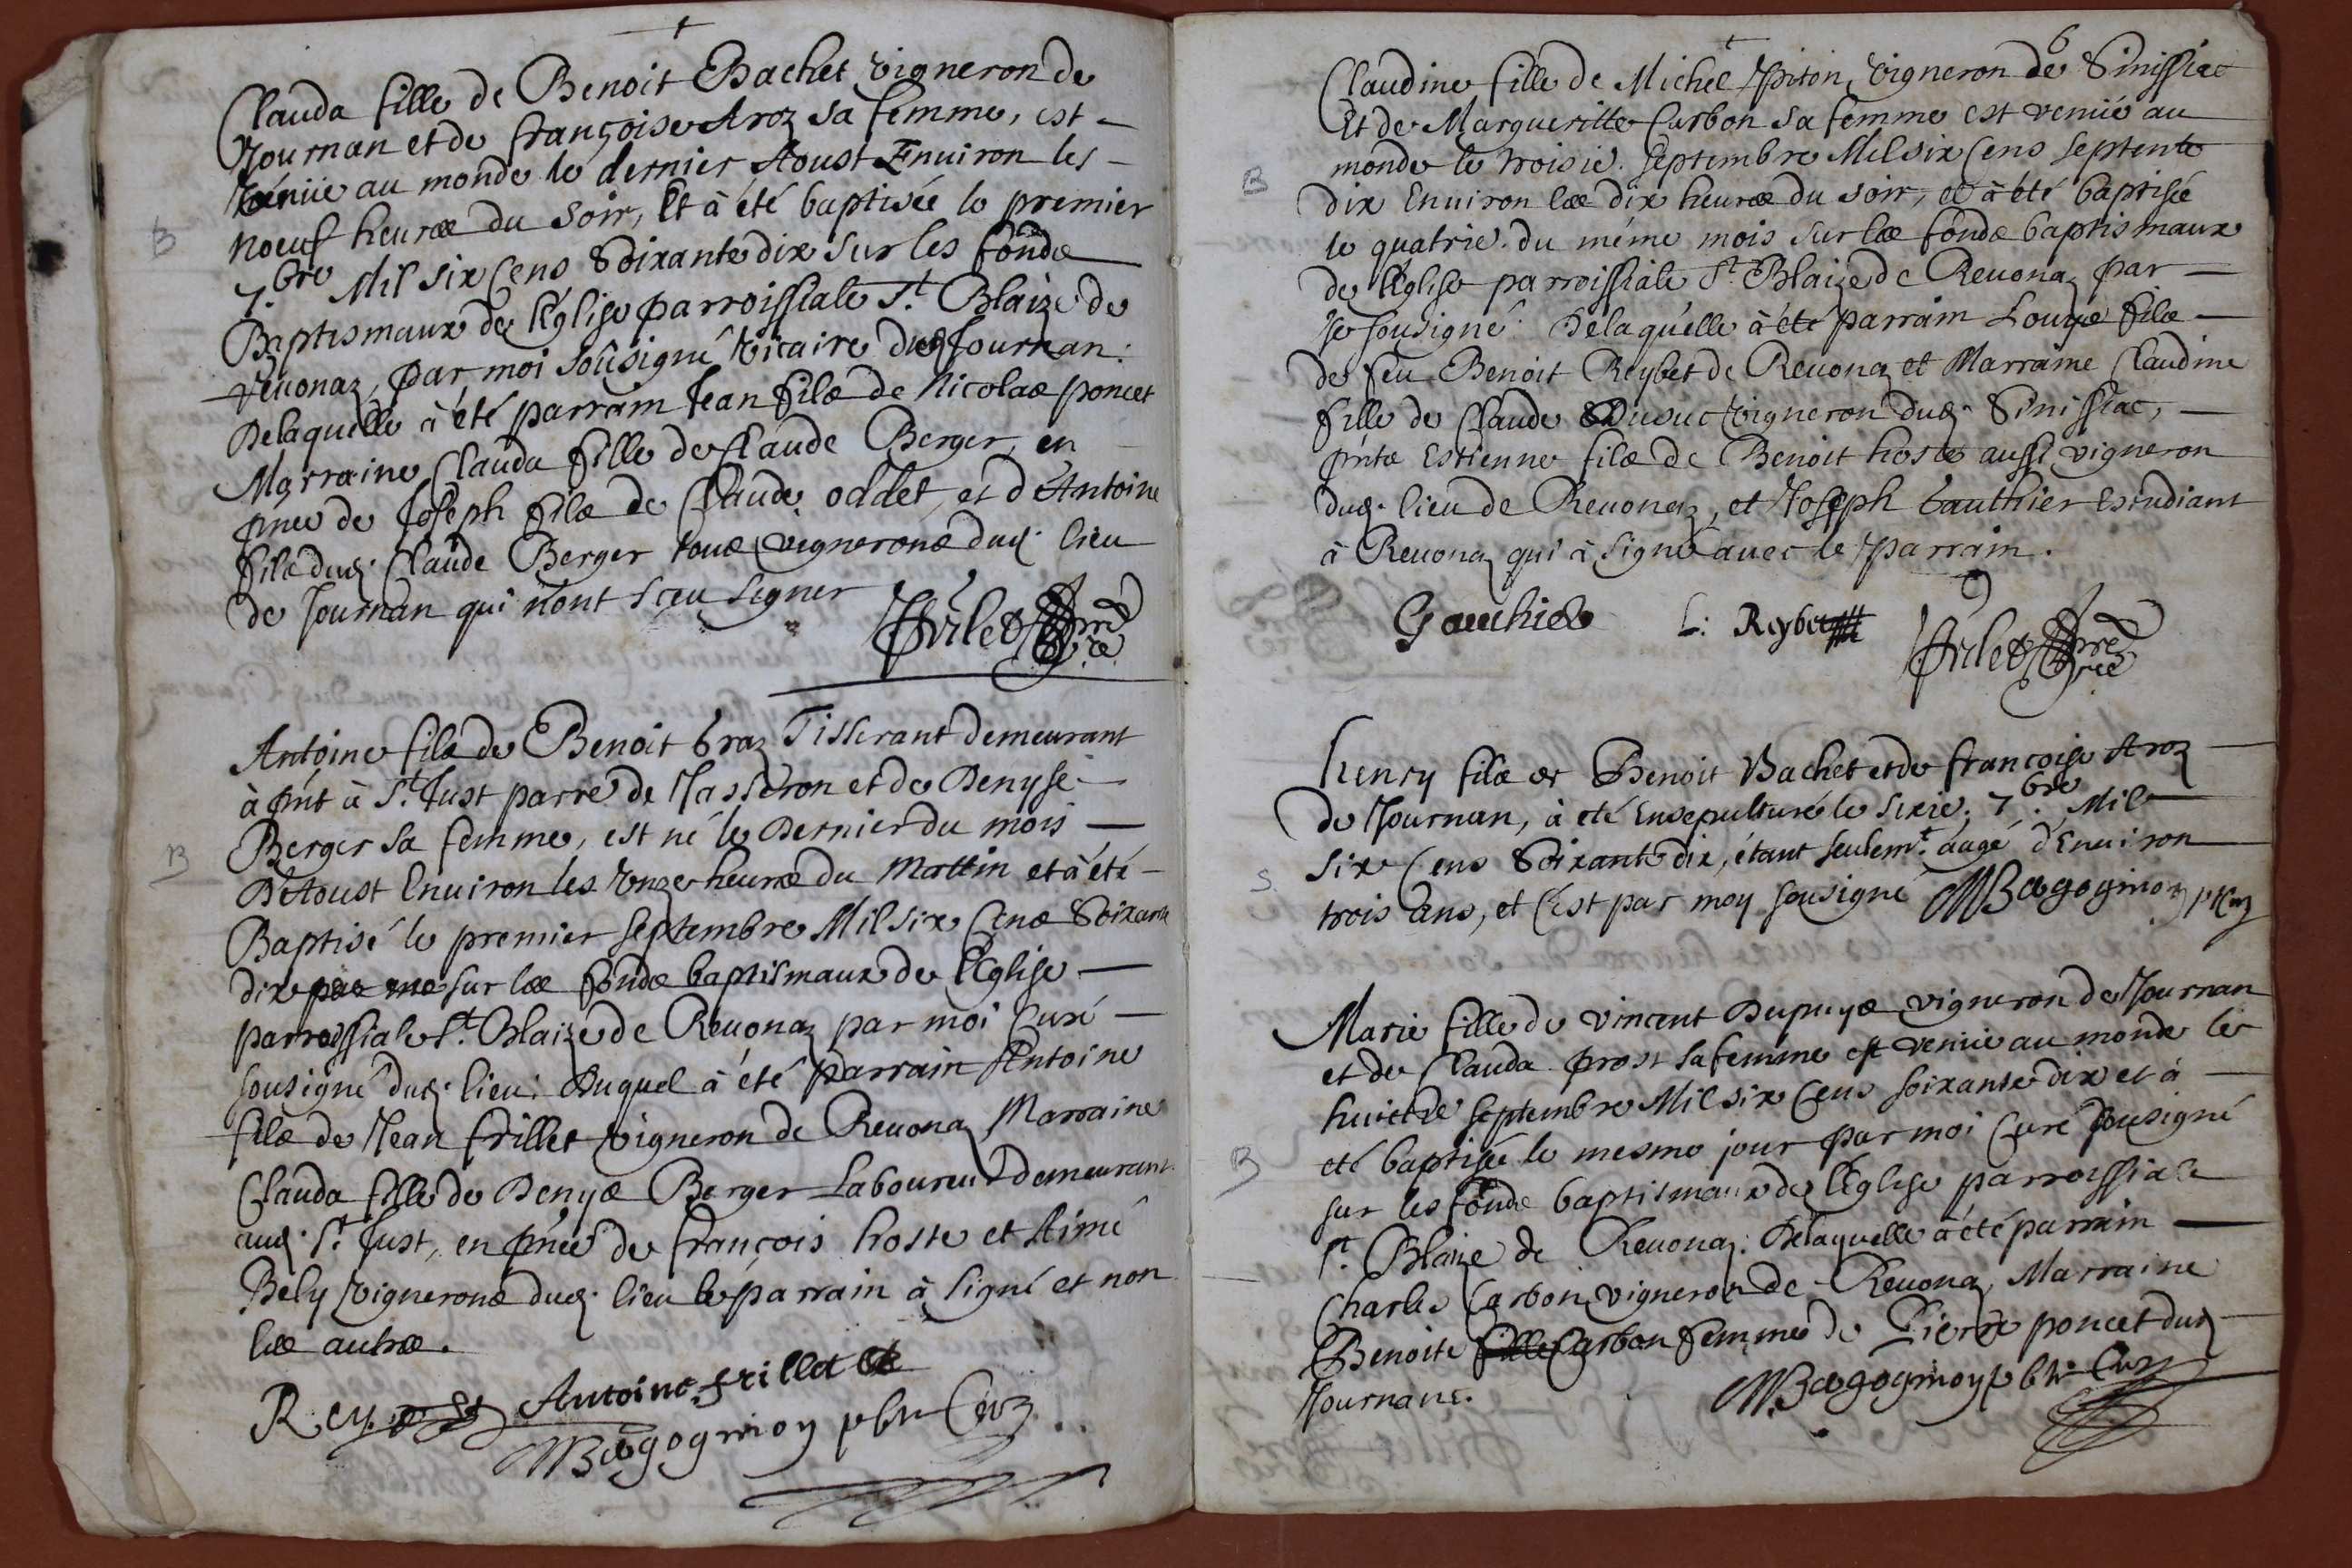 Clauda fille de Benoit Bachet vigneron de
Journan et de françoise Aroz sa femme, est
venüe au monde le dernier Aoust Enuiron les
noeuf heures du soir, Et à été baptisée le premier
7.bre Mil six Cens Soixante dix sur les fonds
Baptismaux de l'Eglise parroissiale St. Blaize de
Reuonaz, par moi soûsigné Vicaire dud. Journan.
Delaquelle à été parrain Jean fils de Nicolas poncet
Marraine Clauda fille de Claude Berger, en
pnce de Joseph fils de Claude oddet, et d'Antoine
fils dud. Claude Berger tous vignerons dud. lieu
de Journan qui n'ont sceu signer
B
Antoine fils de Benoit braz Tisserant demeurant
à pnt à St. Just parre de Masseron et de Denyse
Berger sa femme, est né le Dernier du mois
B
D'Aoust Enuiron les Onze heures du Mattin et à été
Baptisé le premier septembre Mil six Cens Soixante
dix par mo sur les fonds baptismaux de l'Eglise
parroissiale St. Blaize de Reuonaz par moi Curé
sousigné dud. lieu. Duquel à été parrain Antoine
fils de Jean frillet vigneron de Reuonaz Marraine
Clauda fille de Denys Berger Laboureur demeurant
aud. St. Just, en pnce de françois hoste et Aimé
Bely vignerons dud. lieu le parrain à signé et non
les autres.
Antoine frillet
6
Claudine fille de Michel piton, vigneron de Sinissiac
Et de Margueritte Carbon sa femme est venüe au
monde le troisie. septembre Mil six Cens septente
B
dix Enuiron les dix heures du soir, et à été baptisée
le quatrie. du méme mois sur les fonds baptismaux
de l'Eglise parroissiale St. Blaize de Reuonaz par
je sousigné. Delaquelle à été parrain Louys fils
de feu Benoit Reybet de Reuonaz et Marraine Claudine
fille de Claude Dusuc vigneron dud. Sinissiac,
pnts Estienne fils de Benoit hoste aussi vigneron
dud. lieu de Reuonaz, et Joseph Gauthier Estudiant
à Reuonaz qui à signé auec le parrain.
Gauthier L. Reybet
henry fils de Benoit Bachet et de françoise Aroz
de Journan, à eté Ensepulturé le sixie. 7.bre Mil
six Cens Soixante dix, étant seulemt. âagé d'Enuiron
S.
trois ans, et C'est par moy sousigné
Marie fille de Vincent Dupuys vigneron de Journan
et de Clauda prost sa femme est venüe au monde le
huictie septembre Mil six Cens soixante dix et à
eté baptisée le mesme jour par moi Curé sousigné
B
sur les fonds baptismaux de l'Eglise parroissiale
St. Blaize de Reuonaz. Delaquelle à été parrain
Charles Carbon vigneron de Reuonaz, Marraine
Benoite fille Carbon femme de Pierre poncet dud.
Journans.